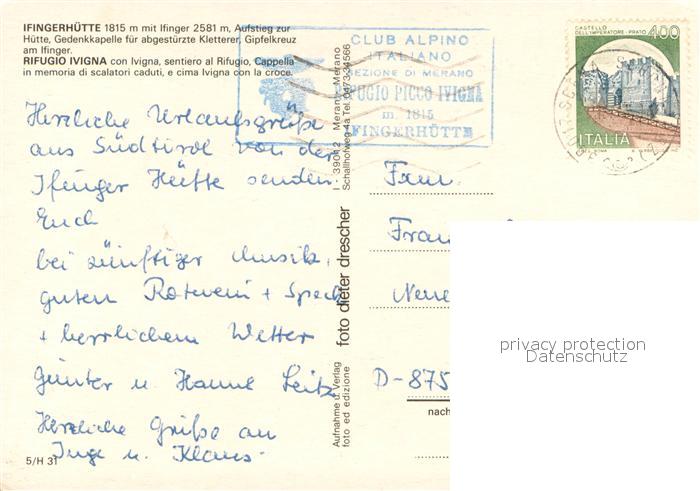 IFINGERHÜTTE 1815 m mit Ifinger 2581 m, Aufstieg zur
Hütte, Gedenkkapelle für abgestürzte Kletterer, Gipfelkreuz
am Ifinger.
RIFUGIO IVIGNA con Ivigna, sentiero al Rifugio, Cappella
in memoria di scalatori caduti, e cima Ivigna con la croce.
Herzliche Urlaubsgrüße
aus Südtirol von der
Ifinger Hütte senden
Euch
bei zünftiger Musik,
guten Rotwein + Speck
+ herrlichem Wetter
Günter u. Hanne Seitz
Herzliche Grüße an
Inge u. Klaus
5/H 31
Aufnahme u. Verlag
foto ed edizione
foto dieter drescher
I - 39012 Meran - Merano
Schallhofweg 4a Tel. 0473-34566
CLUB ALPINO
ITALIANO
SEZIONE DI MERANO
RIFUGIO PICCO IVIGNA
m. 1815
IFINGERHÜTTE
CASTELLO
DELL'IMPERATORE - PRATO
400
ITALIA
Fam.
Fran
Neue
D-875
nach
privacy protection
Datenschutz